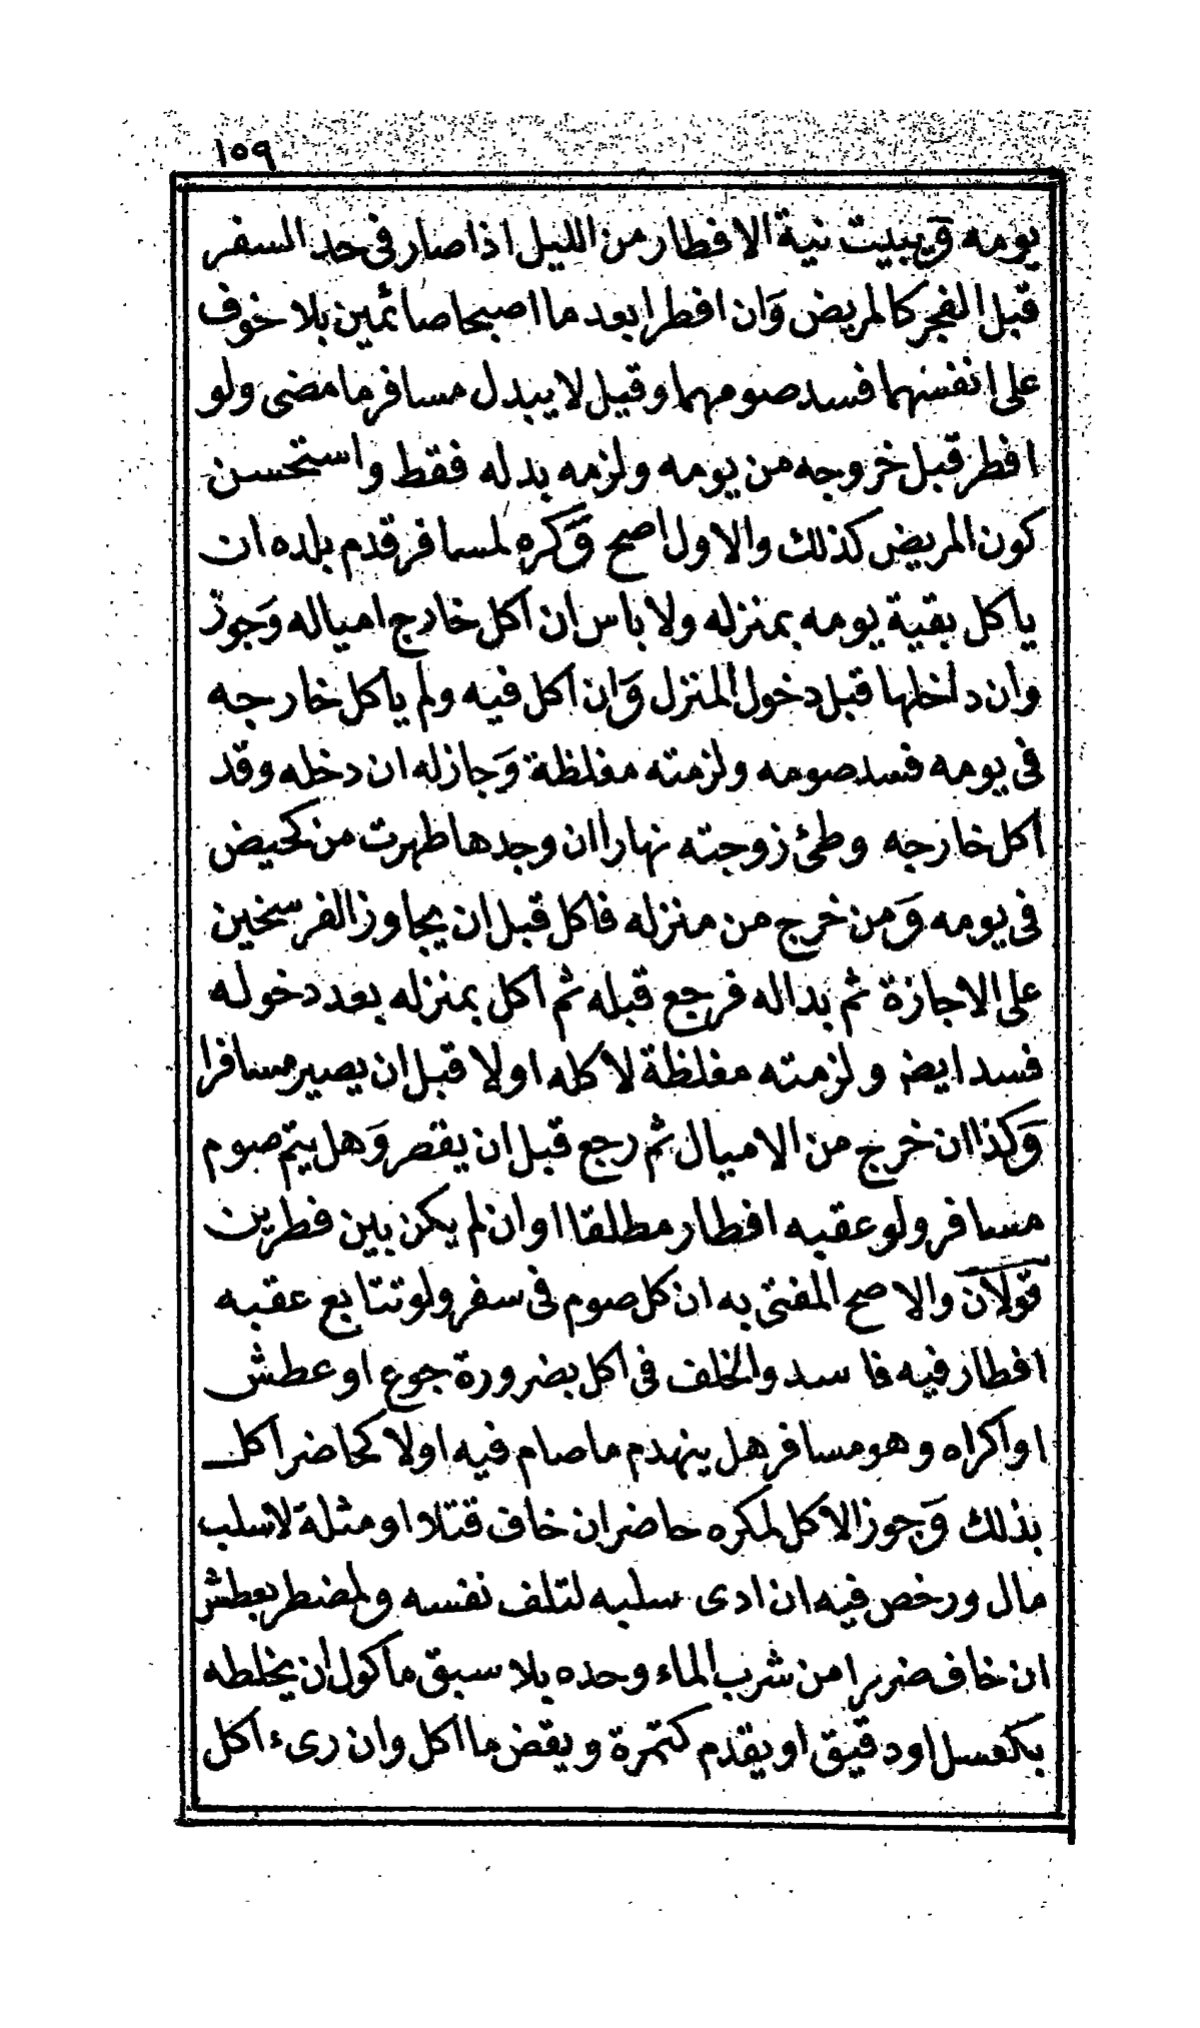 ١٥٩
يومه وَيبييت نية الافطار من الليل اذا صار فى حد السفر
قبل الفجر كالمريض وَان افطرا بعد ما اصبحا صائمين بلا خوف
على انفسهما فسد صومهما وقيل لا يبدل مسافر ما مضى ولو
افطر قبل خروجه من يومه ولزمه بدله فقط واستحسن
كون المريض كذلك والاول اصح وَكره لمسافر قدم بلده ان
ياكل بقية يومه بمنزله ولا باس ان اكل خارج امياله وَجوز
وان داخلها قبل دخول المنزل وَان اكل فيه ولم ياكل خارجه
فى يومه فسد صومه ولزمته مغلظة وَجاز له ان دخله وقد
اكل خارجه وطئ زوجته نهارا ان وجدها طهرت من كحيض
فى يومه وَمن خرج من منزله فاكل قبل ان يجاوز الفرسخين
على الاجازة ثم بدا له فرجع قبله ثم اكل بمنزله بعد دخوله
فسد ايضا ولزمته مغلظة لاكله اولا قبل ان يصير مسافرا
وَكذا ان خرج من الاميال ثم رجع قبل ان يقصر وَهل يتم صوم
مسافر ولو عقبه افطار مطلقا او ان لم يكن بين فطرين
قولان والاصح المفتى به ان كل صوم فى سفر ولو تتابع عقبه
افطار فيه فاسد والخلف فى اكل بضرورة جوع او عطش
او اكراه وهو مسافر هل ينهدم ما صام فيه اولا كحاضر اكل
بذلك وَجوز الاكل لمكره حاضر ان خاف قتلا او مثلة لا سلب
مال ورخص فيه ان ادى سلبه لتلف نفسه ولمضطر بعطش
ان خاف ضررا من شرب الماء وحده بلا سبق ماكول ان يخلطه
بكعسل او دقيق او يقدم كتمرة ويقض ما اكل وان رىء اكل